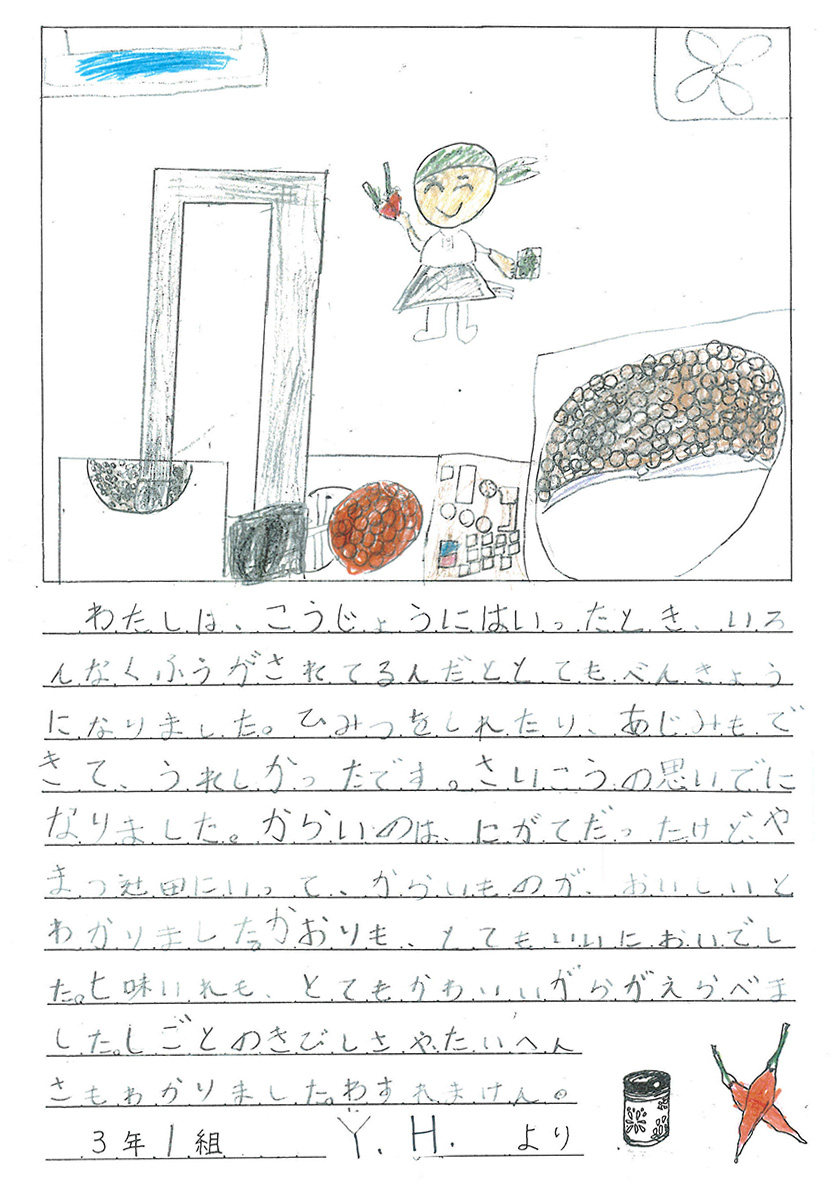 わたしは、こうじょうにはいったとき、いろ
んなくふうがされてるんだととてもべんきょう
になりました。ひみつをしれたり、あじみもで
きて、うれしかったです。さいこうの思いでに
なりました。からいのは、にがてだったけど、や
まつ辻田にいって、からいものが、おいしいと
わかりました。かおりも、とてもいいにおいでし
た。七味いれも、とてもかわいいがらがえらべま
した。しごとのきびしさやたいへん
さもわかりました。わすれまけん。
3年1組 Y.H. より